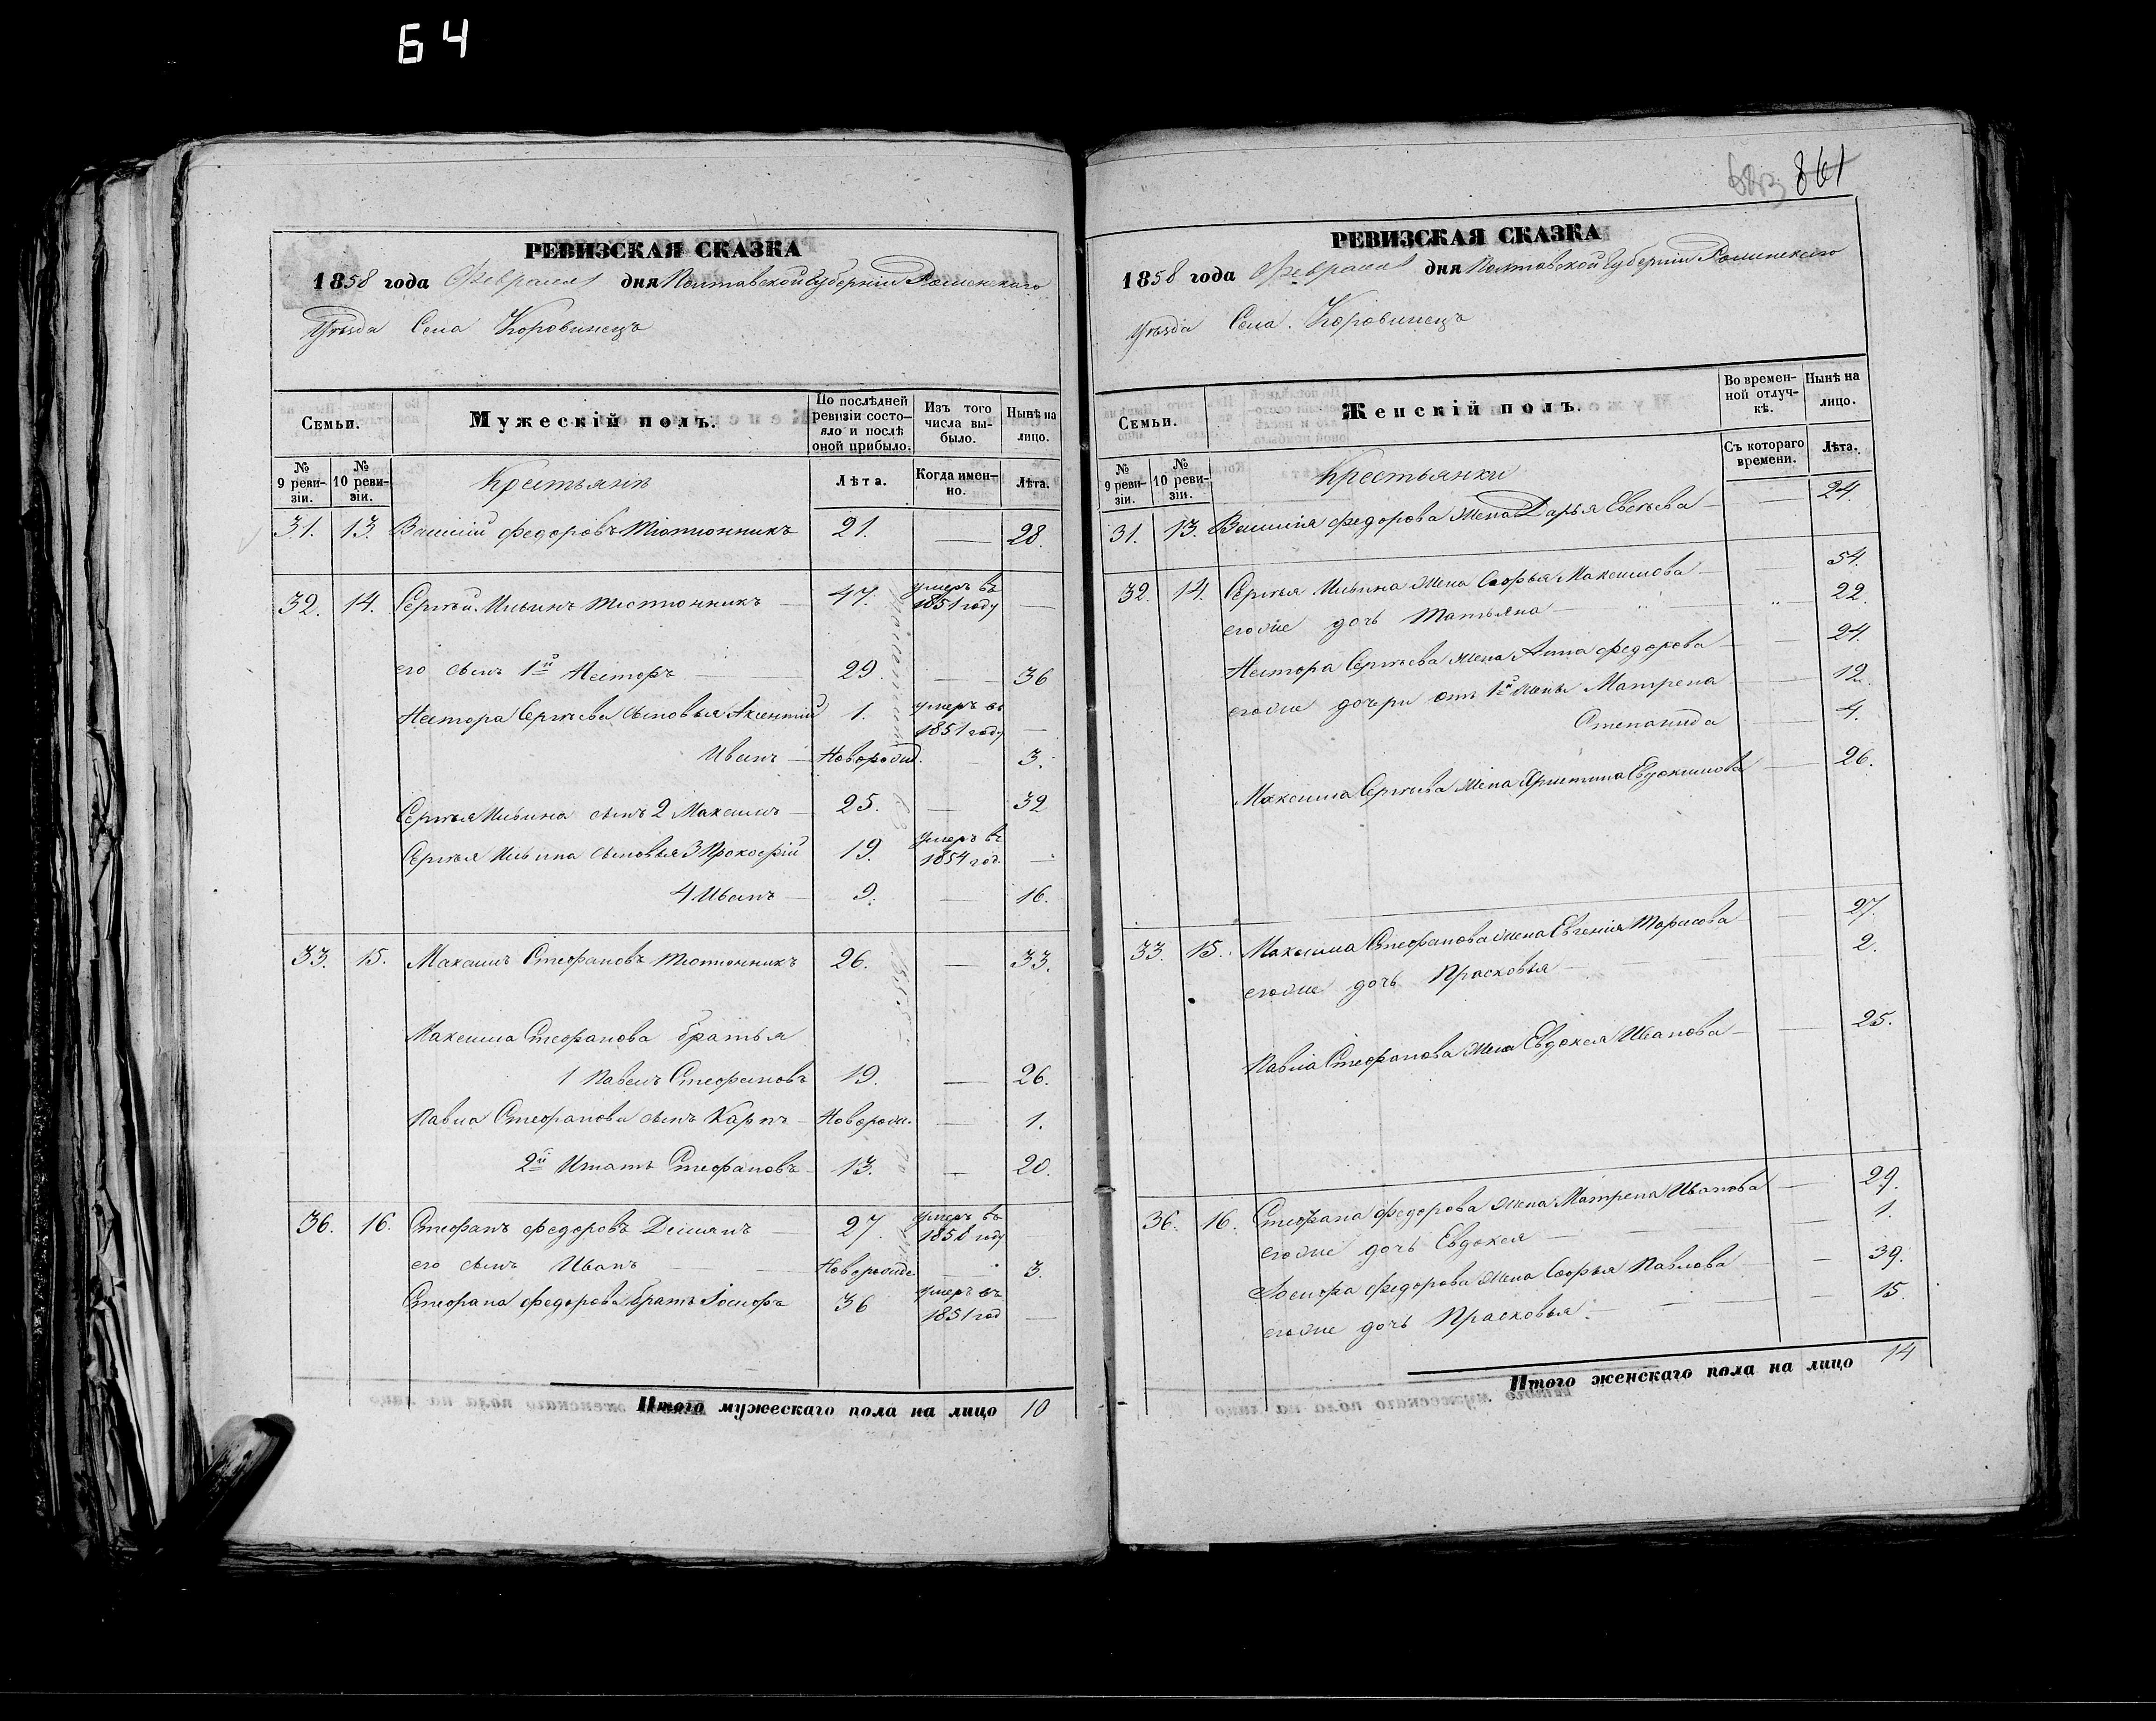 64
РЕВИЗСКАЯ СКАЗКА
1858 года Февраля дня Полтавской Губерніи Роменскаго
Уѣзда Села Коровинецъ
Семьи.
Мужескій полъ.
По послѣдней ревизіи состояло и послѣ оной прибыло.
Изъ того числа выбыло.
Нынѣ на лицо.
№ 9 ревизіи.
№ 10 ревизіи.
Крестьянѣ
Лѣта.
Когда именно.
Лѣта.
31. 13. Василій Федоровъ Тютюнникъ 21. — 28.
32. 14. Сергѣй Ильинъ Тютюнникъ — 47. умеръ въ 1851 году —
его сынъ 1й Несторъ — 29. — 36
Нестора Сергѣева сыновья Аксентій 1. умеръ въ 1851 году —
Иванъ — Новорожд. — 3.
Сергѣя Ильина сынъ 2 Максимъ — 25. — 32
Сергѣя Ильина сыновья 3 Прокофій 19. умеръ въ 1854 год. —
4 Иванъ — 9. — 16.
33. 15. Максимъ Стефановъ Тютюнникъ 26. — 33.
Максима Стефанова братья
1 Павелъ Стефановъ 19. — 26.
Павла Стефанова сынъ Карпъ — Новорож. — 1.
2й Игнатъ Стефановъ — 13. — 20.
36. 16. Стефанъ Федоровъ Демьянъ — 27. умеръ въ 1858 году
его сынъ Иванъ — Новорожде — 3.
Стефана Федорова братъ Іосифъ 36 умеръ въ 1851 год —
Итого мужескаго пола на лицо 10
861
РЕВИЗСКАЯ СКАЗКА
1858 года Февраля дня Полтавской Губерніи Роменскаго
Уѣзда Села Коровинецъ
Семьи.
Женскій полъ.
Во временной отлучкѣ.
Нынѣ на лицо.
№ 9 ревизіи.
№ 10 ревизіи.
Крестьянки
Съ котораго времени.
Лѣта.
31. 13. Василія Федорова жена Дарья Евсѣева — 24.
32. 14. Сергѣя Ильина жена Софья Максимова — 54.
егоже дочь Татьяна — 22.
Нестора Сергѣева жена Анна Федорова — 24.
егоже дочери отъ 1й жены Матрена — 12.
Степанида — 4.
Максима Сергѣева жена Христина Евдокимова — 26.
33. 15. Максима Стефанова жена Евгенія Тарасова — 27.
егоже дочь Прасковья — 2.
Павла Стефанова жена Евдокея Иванова — 25.
36. 16. Стефана Федорова жена Матрена Иванова — 29.
егоже дочь Евдокея — 1.
Іосифа Федорова жена Софья Павлова — 39.
егоже дочь Прасковья. — 15.
Итого женскаго пола на лицо 14